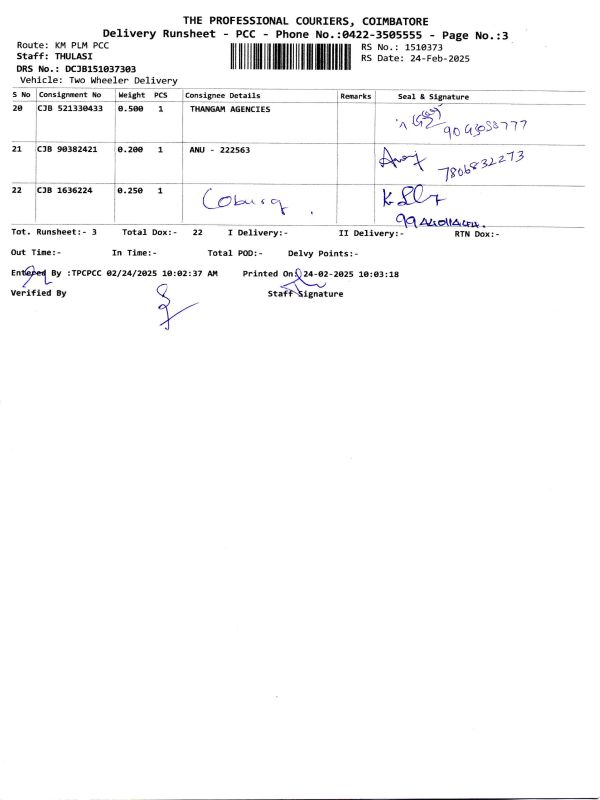 THE PROFESSIONAL COURIERS, COIMBATORE
Delivery Runsheet - PCC - Phone No.:0422-3505555 - Page No.:3
Route: KM PLM PCC RS No.: 1510373
Staff: THULASI RS Date: 24-Feb-2025
DRS No.: DCJB151037303
Vehicle: Two Wheeler Delivery
S No Consignment No Weight PCS Consignee Details Remarks Seal & Signature
20 CJB 521330433 0.500 1 THANGAM AGENCIES
21 CJB 90382421 0.200 1 ANU - 222563 7806832273
22 CJB 1636224 0.250 1
Tot. Runsheet:- 3 Total Dox:- 22 I Delivery:- II Delivery:- RTN Dox:-
Out Time:- In Time:- Total POD:- Delvy Points:-
Entered By :TPCPCC 02/24/2025 10:02:37 AM Printed On: 24-02-2025 10:03:18
Verified By Staff Signature